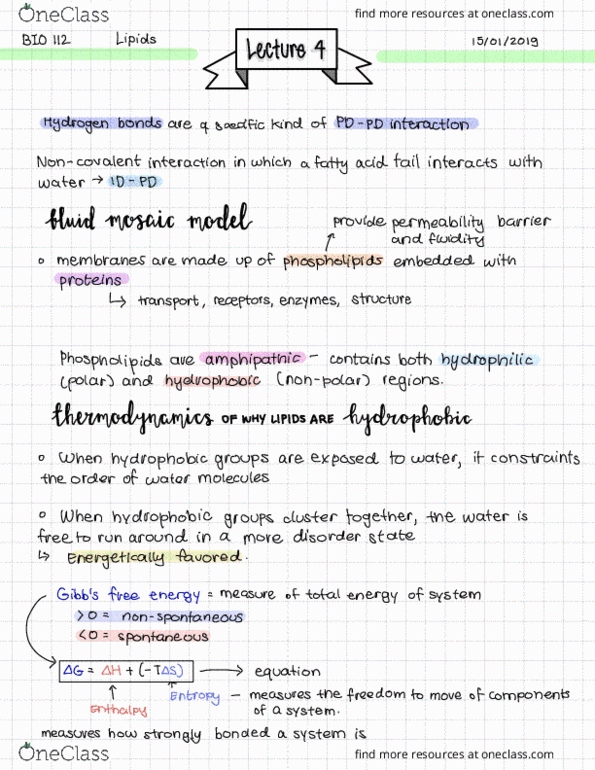 OneClass
find more resources at oneclass.com
BIO 112 Lipids
Lecture 4
15/01/2019
Hydrogen bonds are a specific kind of PD-PD interaction
Non-covalent interaction in which a fatty acid tail interacts with
water → ID-PD
fluid mosaic model
provide permeability barrier
and fluidity
○ membranes are made up of phospholipids embedded with
proteins
↳ transport, receptors, enzymes, structure
Phospholipids are amphipathic - contains both hydrophilic
(polar) and hydrophobic (non-polar) regions.
thermodynamics OF WHY LIPIDS ARE hydrophobic
○ When hydrophobic groups are exposed to water, it constraints
the order of water molecules
○ When hydrophobic groups cluster together, the water is
free to run around in a more disorder state
↳ Energetically favored.
Gibb's free energy = measure of total energy of system
>0 = non-spontaneous
<0 = spontaneous
ΔG = ΔH + (-TΔS) → equation
Enthalpy
Entropy - measures the freedom to move of components
of a system.
measures how strongly bonded a system is
OneClass
find more resources at oneclass.com